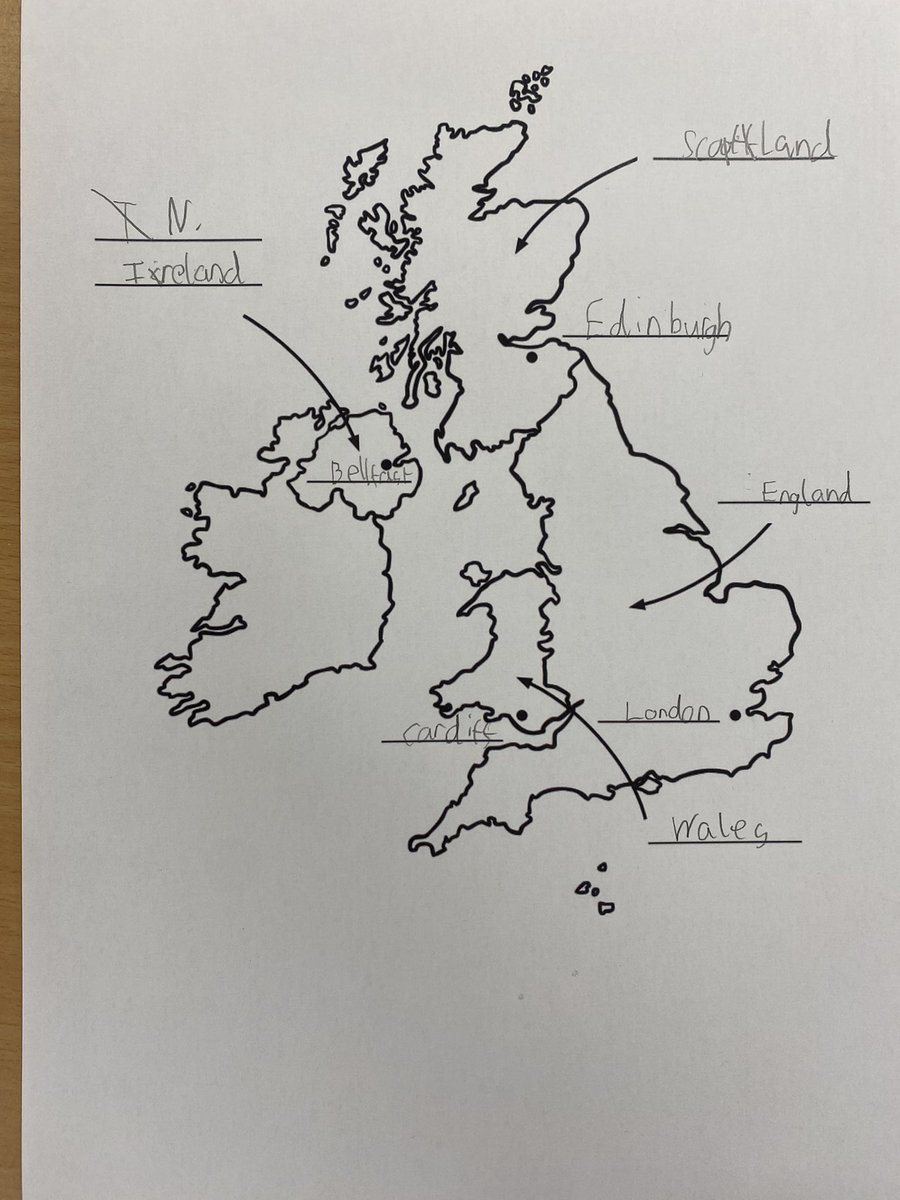 Scottland
N.
Ireland
Edinburgh
England
London
Cardiff
Wales